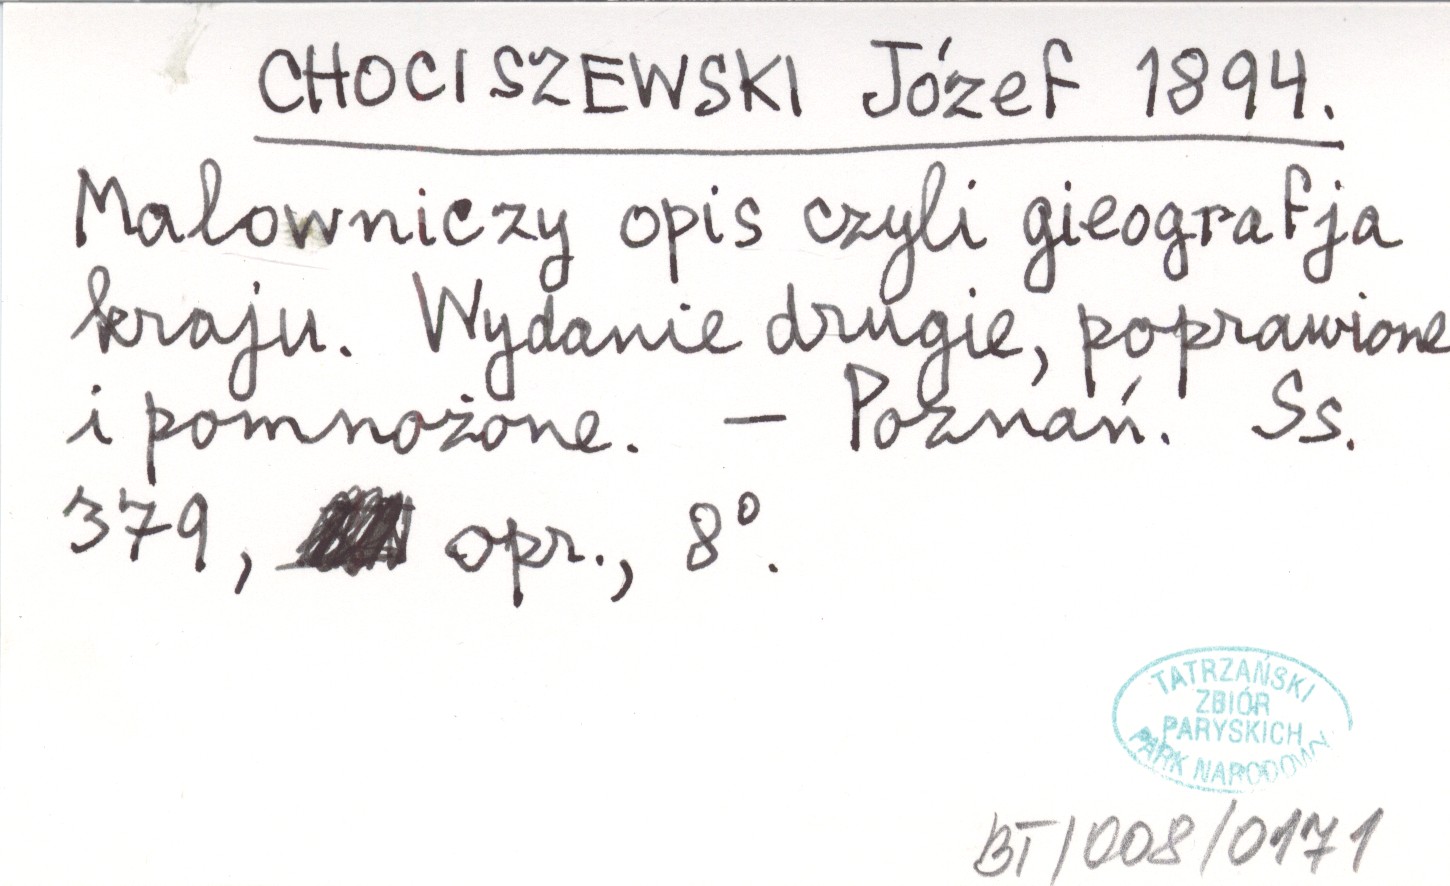 CHOCISZEWSKI Józef 1894.
Malowniczy opis czyli gieografja
kraju. Wydanie drugie, poprawione
i pomnożone. — Poznań. Ss.
379, opr., 8°.
TATRZAŃSKI
ZBIÓR
PARYSKICH
PARK NARODOWY
BT/008/0171